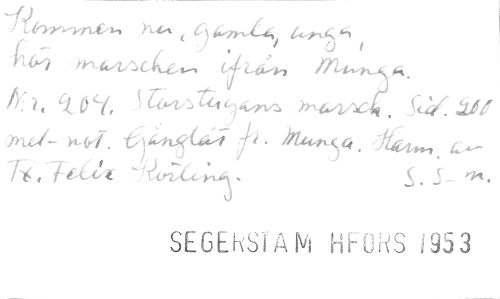 Kommen nu, gamla, unga,
hör marschen ifrån Munga.
Nr. 204. Storstugans marsch. Sid. 200
mel-not. Gånglåt fr. Munga. Harm. av
Tx. Felix Körling. S. S-m.
SEGERSTAM HFORS 1953